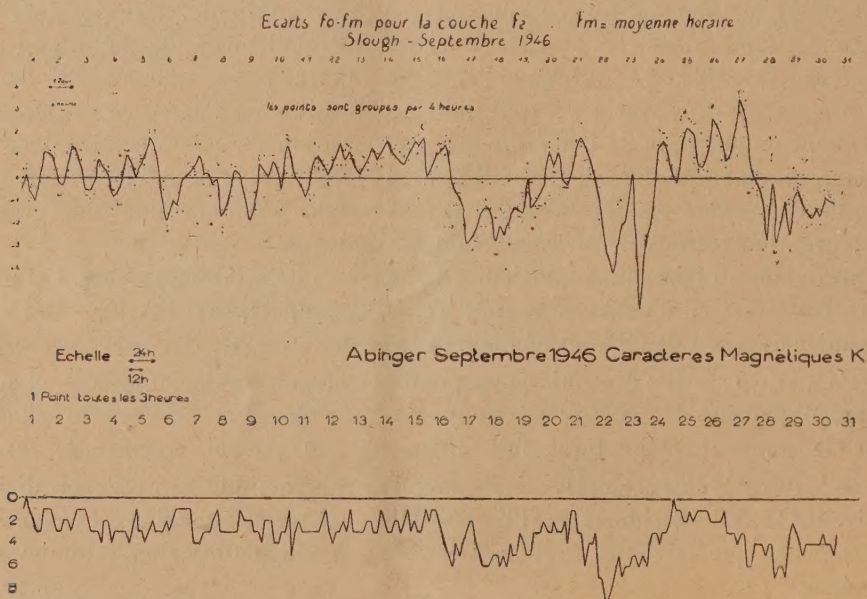 Ecarts fo-fm pour la couche f2 . fm= moyenne horaire
Slough - Septembre 1946
1 2 3 4 5 6 7 8 9 10 11 12 13 14 15 16 17 18 19 20 21 22 23 24 25 26 27 28 29 30 31
les points sont groupes par 4 heures
4
3
2
1
0
-1
-2
-3
-4
Echelle 24h
12h
Abinger Septembre 1946 Caracteres Magnétiques K
1 Point toutes les 3 heures
1 2 3 4 5 6 7 8 9 10 11 12 13 14 15 16 17 18 19 20 21 22 23 24 25 26 27 28 29 30 31
0
2
4
6
8